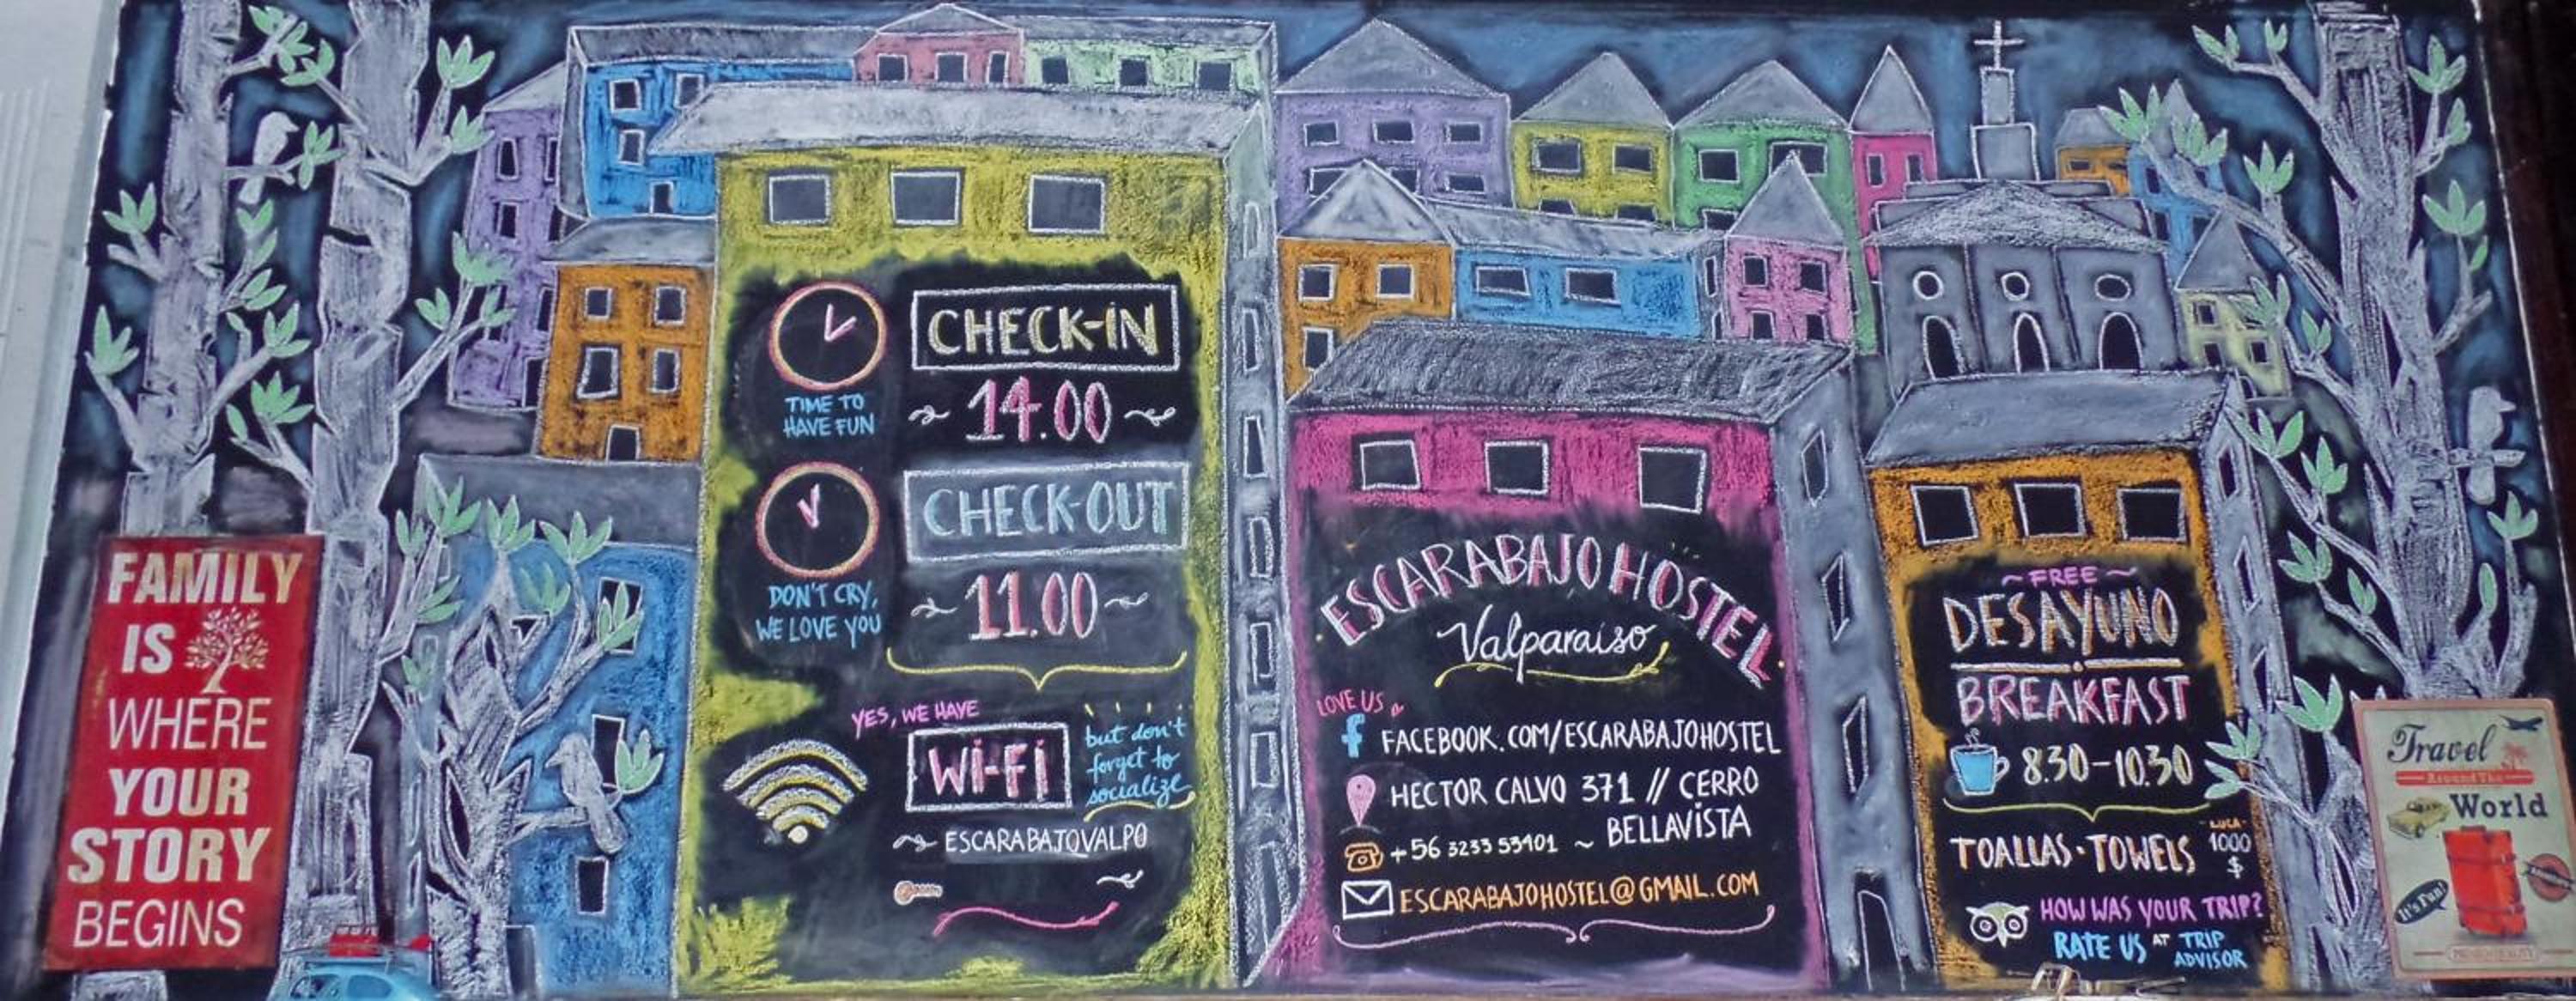 FAMILY
IS
WHERE
YOUR
STORY
BEGINS
CHECK-IN
14.00
TIME TO
HAVE FUN
CHECK-OUT
11.00
DON'T CRY,
WE LOVE YOU
YES, WE HAVE
WI-FI
but don't
forget to
socialize
ESCARABAJOVALPO
ESCARABAJO HOSTEL
Valparaíso
LOVE US
FACEBOOK.COM/ESCARABAJOHOSTEL
HECTOR CALVO 371 // CERRO
BELLAVISTA
+56 3233 53401
ESCARABAJOHOSTEL@GMAIL.COM
~ FREE ~
DESAYUNO
BREAKFAST
8.30-10.30
TOALLAS · TOWELS
LUCA
1000
$
HOW WAS YOUR TRIP?
RATE US AT TRIP
ADVISOR
Travel
Around The
World
It's Fun!